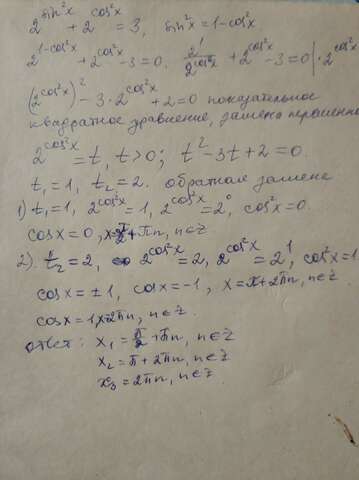 2^(sin²x) + 2^(cos²x) = 3, sin²x = 1-cos²x
2^(1-cos²x) + 2^(cos²x) - 3 = 0. 2¹/2^(cos²x) + 2^(cos²x) - 3 = 0 | · 2^(cos²x)
(2^(cos²x))² - 3 · 2^(cos²x) + 2 = 0 показательное
квадратное уравнение, замена переменно
2^(cos²x) = t, t>0; t² - 3t + 2 = 0.
t₁ = 1, t₂ = 2. обратная замена
1) t₁ = 1, 2^(cos²x) = 1, 2^(cos²x) = 2⁰, cos²x = 0.
cos x = 0, x = π/2 + πn, n∈Z
2). t₂ = 2, 2^(cos²x) = 2, 2^(cos²x) = 2¹, cos²x = 1
cos x = ±1, cos x = -1, x = π + 2πn, n∈Z.
cos x = 1, x = 2πn, n∈Z.
ответ: x₁ = π/2 + πn, n∈Z
x₂ = π + 2πn, n∈Z
x₃ = 2πn, n∈Z.